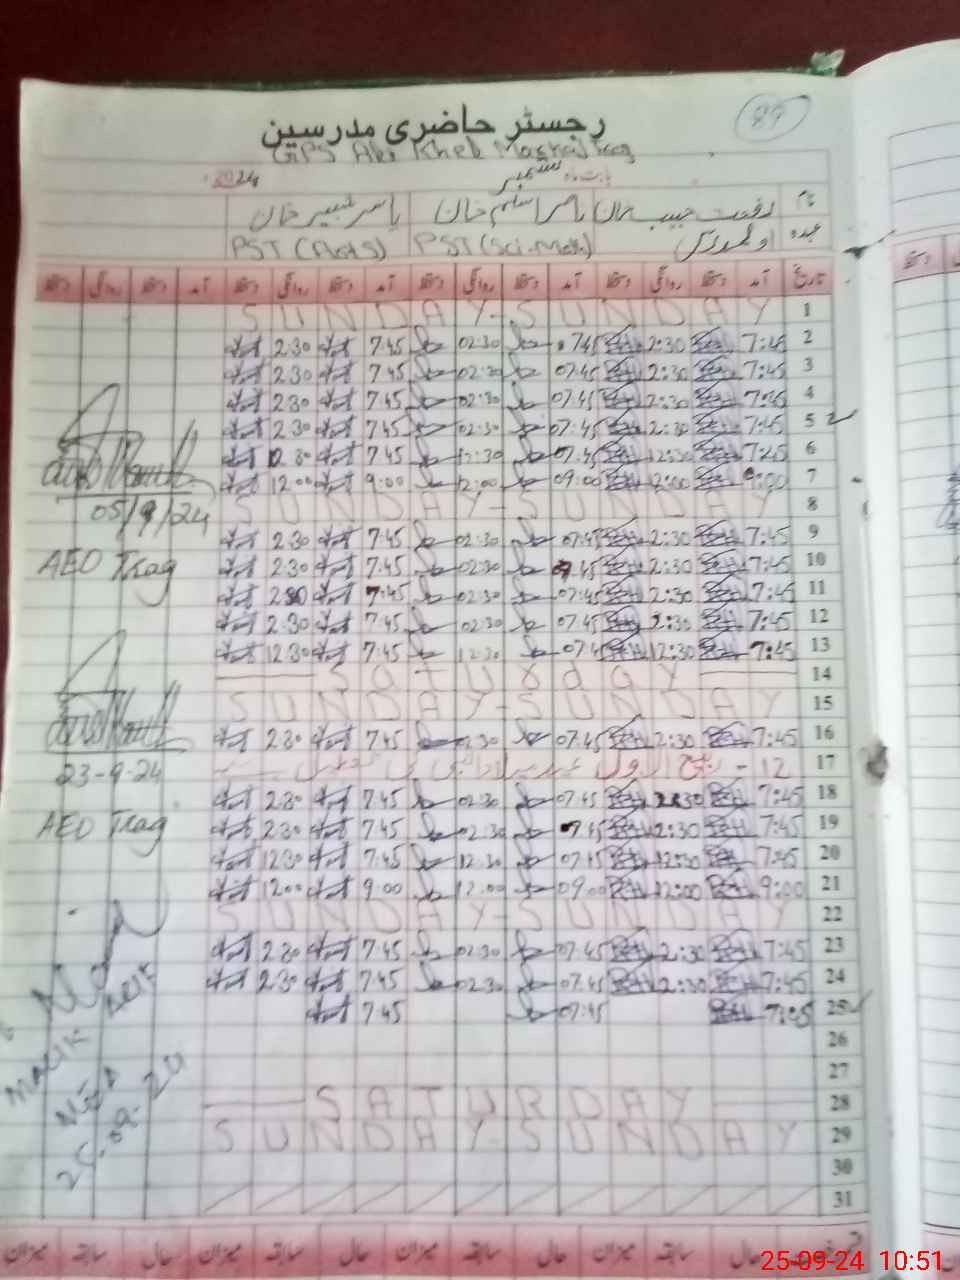 89
رجسٹر حاضری مدرسین
GPS
2024 بابت ماہ ستمبر
نام رفعت حبیب خان ناصر اسلم خان یاسر شبیر خان
عہدہ PST (Sci-Math) PST (Arts)
تاریخ آمد دستخط روانگی دستخط آمد دستخط روانگی دستخط آمد دستخط روانگی دستخط آمد دستخط روانگی دستخط
1 SUNDAY-SUNDAY
2 7:45 2:30 07:45 02:30 7:45 2:30
3 7:45 2:30 07:45 02:30 7:45 2:30
4 7:45 2:30 07:45 02:30 7:45 2:30
5 7:45 2:30 07:45 02:30 7:45 2:30
6 7:45 12:30 07:45 12:30 7:45
7 9:00 12:00 09:00 12:00 9:00 12:00
8 SUNDAY-SUNDAY
05/9/24
9 7:45 2:30 07:45 02:30 7:45 2:30
10 7:45 2:30 07:45 02:30 7:45 2:30
AEO Trag
11 7:45 2:30 07:45 02:30 7:45 2:30
12 7:45 2:30 07:45 02:30 7:45 2:30
13 7:45 12:30 07:45 12:30 7:45 12:30
14 Saturday
15 SUNDAY-SUNDAY
16 7:45 2:30 07:45 02:30 7:45 2:30
17 12 - ربیع الاول عید میلاد النبی
23-9-24
18 7:45 2:30 07:45 02:30 7:45 2:30
19 7:45 2:30 07:45 02:30 7:45 2:30
AEO Trag
20 7:45 12:30 07:45 12:30 7:45 12:30
21 9:00 12:00 09:00 12:00 9:00 12:00
22 SUNDAY-SUNDAY
23 7:45 2:30 07:45 02:30 7:45 2:30
24 7:45 2:30 07:45 02:30 7:45 2:30
25 7:45 07:45 7:45
26
27
MALIK
28 SATURDAY
29 SUNDAY-SUNDAY
25-09-24
30
31
حال سابقہ میزان حال سابقہ میزان حال سابقہ میزان حال سابقہ میزان
25-09-24 10:51